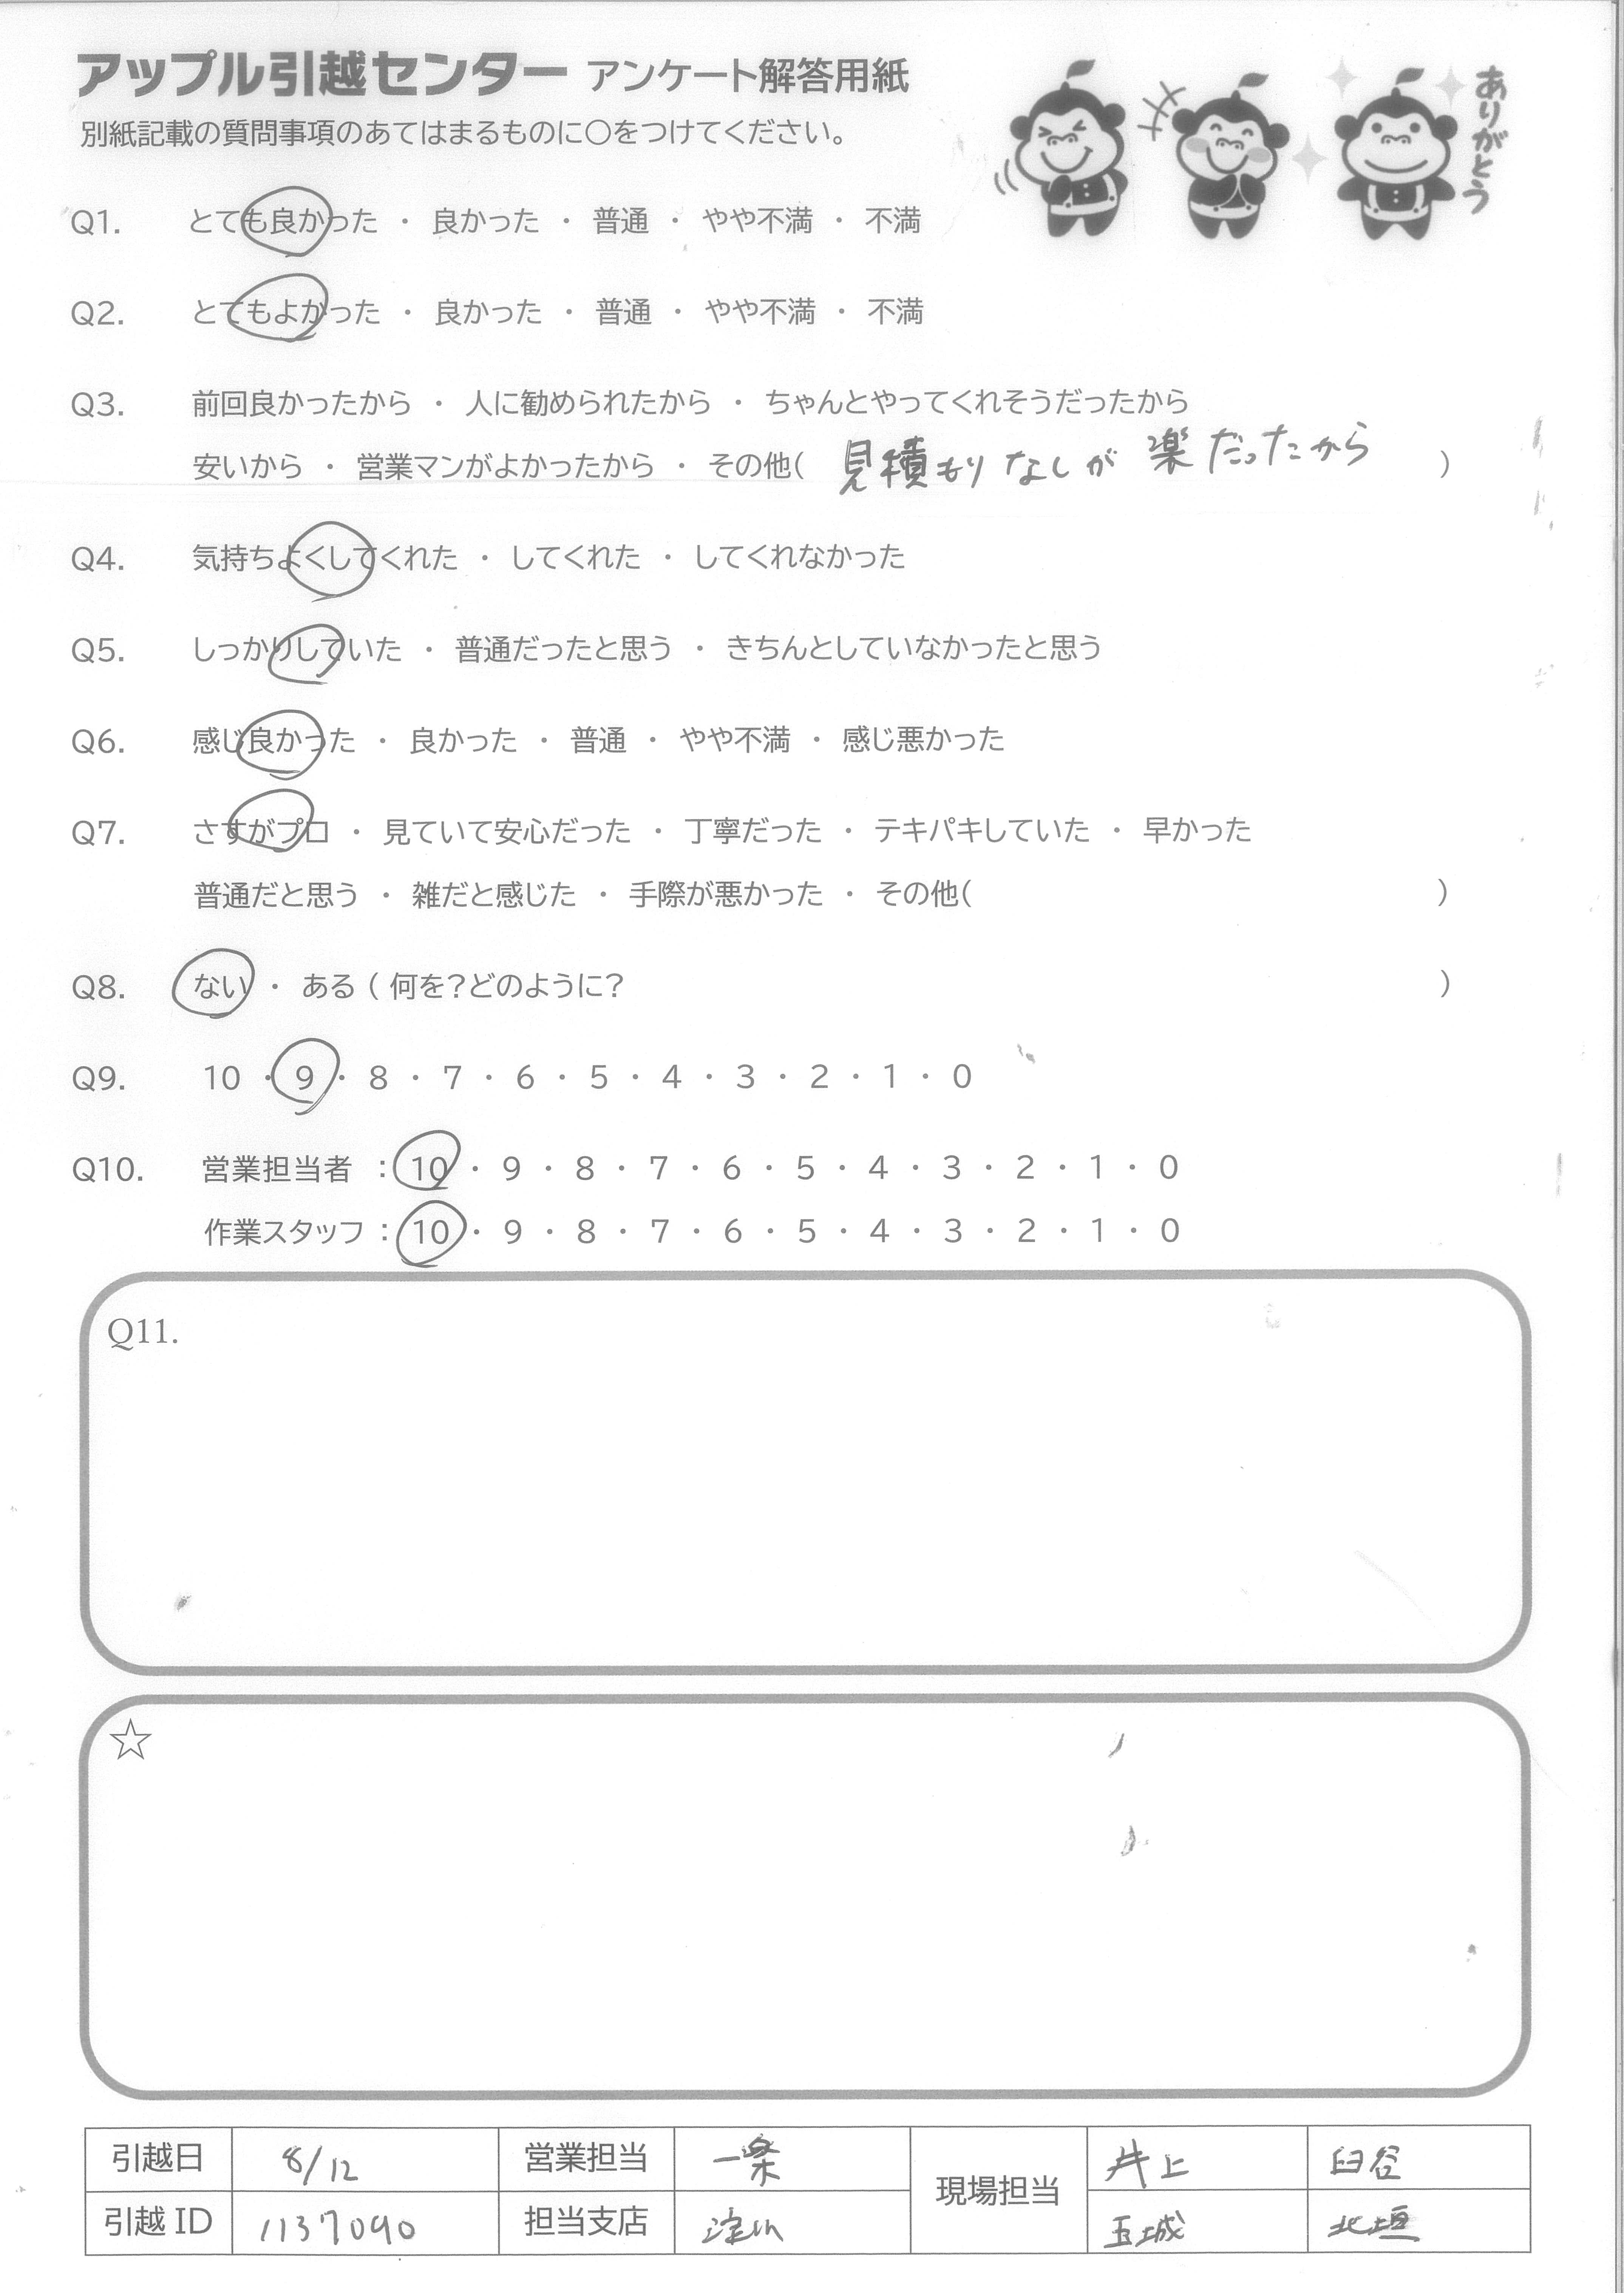 アップル引越センター アンケート解答用紙
別紙記載の質問事項のあてはまるものに○をつけてください。
ありがとう
Q1. とても良かった ・ 良かった ・ 普通 ・ やや不満 ・ 不満
Q2. とてもよかった ・ 良かった ・ 普通 ・ やや不満 ・ 不満
Q3. 前回良かったから ・ 人に勧められたから ・ ちゃんとやってくれそうだったから
安いから ・ 営業マンがよかったから ・ その他( 見積もりなしが 楽だったから )
Q4. 気持ちよくしてくれた ・ してくれた ・ してくれなかった
Q5. しっかりしていた ・ 普通だったと思う ・ きちんとしていなかったと思う
Q6. 感じ良かった ・ 良かった ・ 普通 ・ やや不満 ・ 感じ悪かった
Q7. さすがプロ ・ 見ていて安心だった ・ 丁寧だった ・ テキパキしていた ・ 早かった
普通だと思う ・ 雑だと感じた ・ 手際が悪かった ・ その他( )
Q8. ない ・ ある ( 何を?どのように? )
Q9. 10 ・ 9 ・ 8 ・ 7 ・ 6 ・ 5 ・ 4 ・ 3 ・ 2 ・ 1 ・ 0
Q10. 営業担当者 : 10 ・ 9 ・ 8 ・ 7 ・ 6 ・ 5 ・ 4 ・ 3 ・ 2 ・ 1 ・ 0
作業スタッフ : 10 ・ 9 ・ 8 ・ 7 ・ 6 ・ 5 ・ 4 ・ 3 ・ 2 ・ 1 ・ 0
Q11.
☆
引越日 8/12 営業担当 現場担当 井上 臼谷
引越 ID 1137090 担当支店 淀川 玉城 北垣